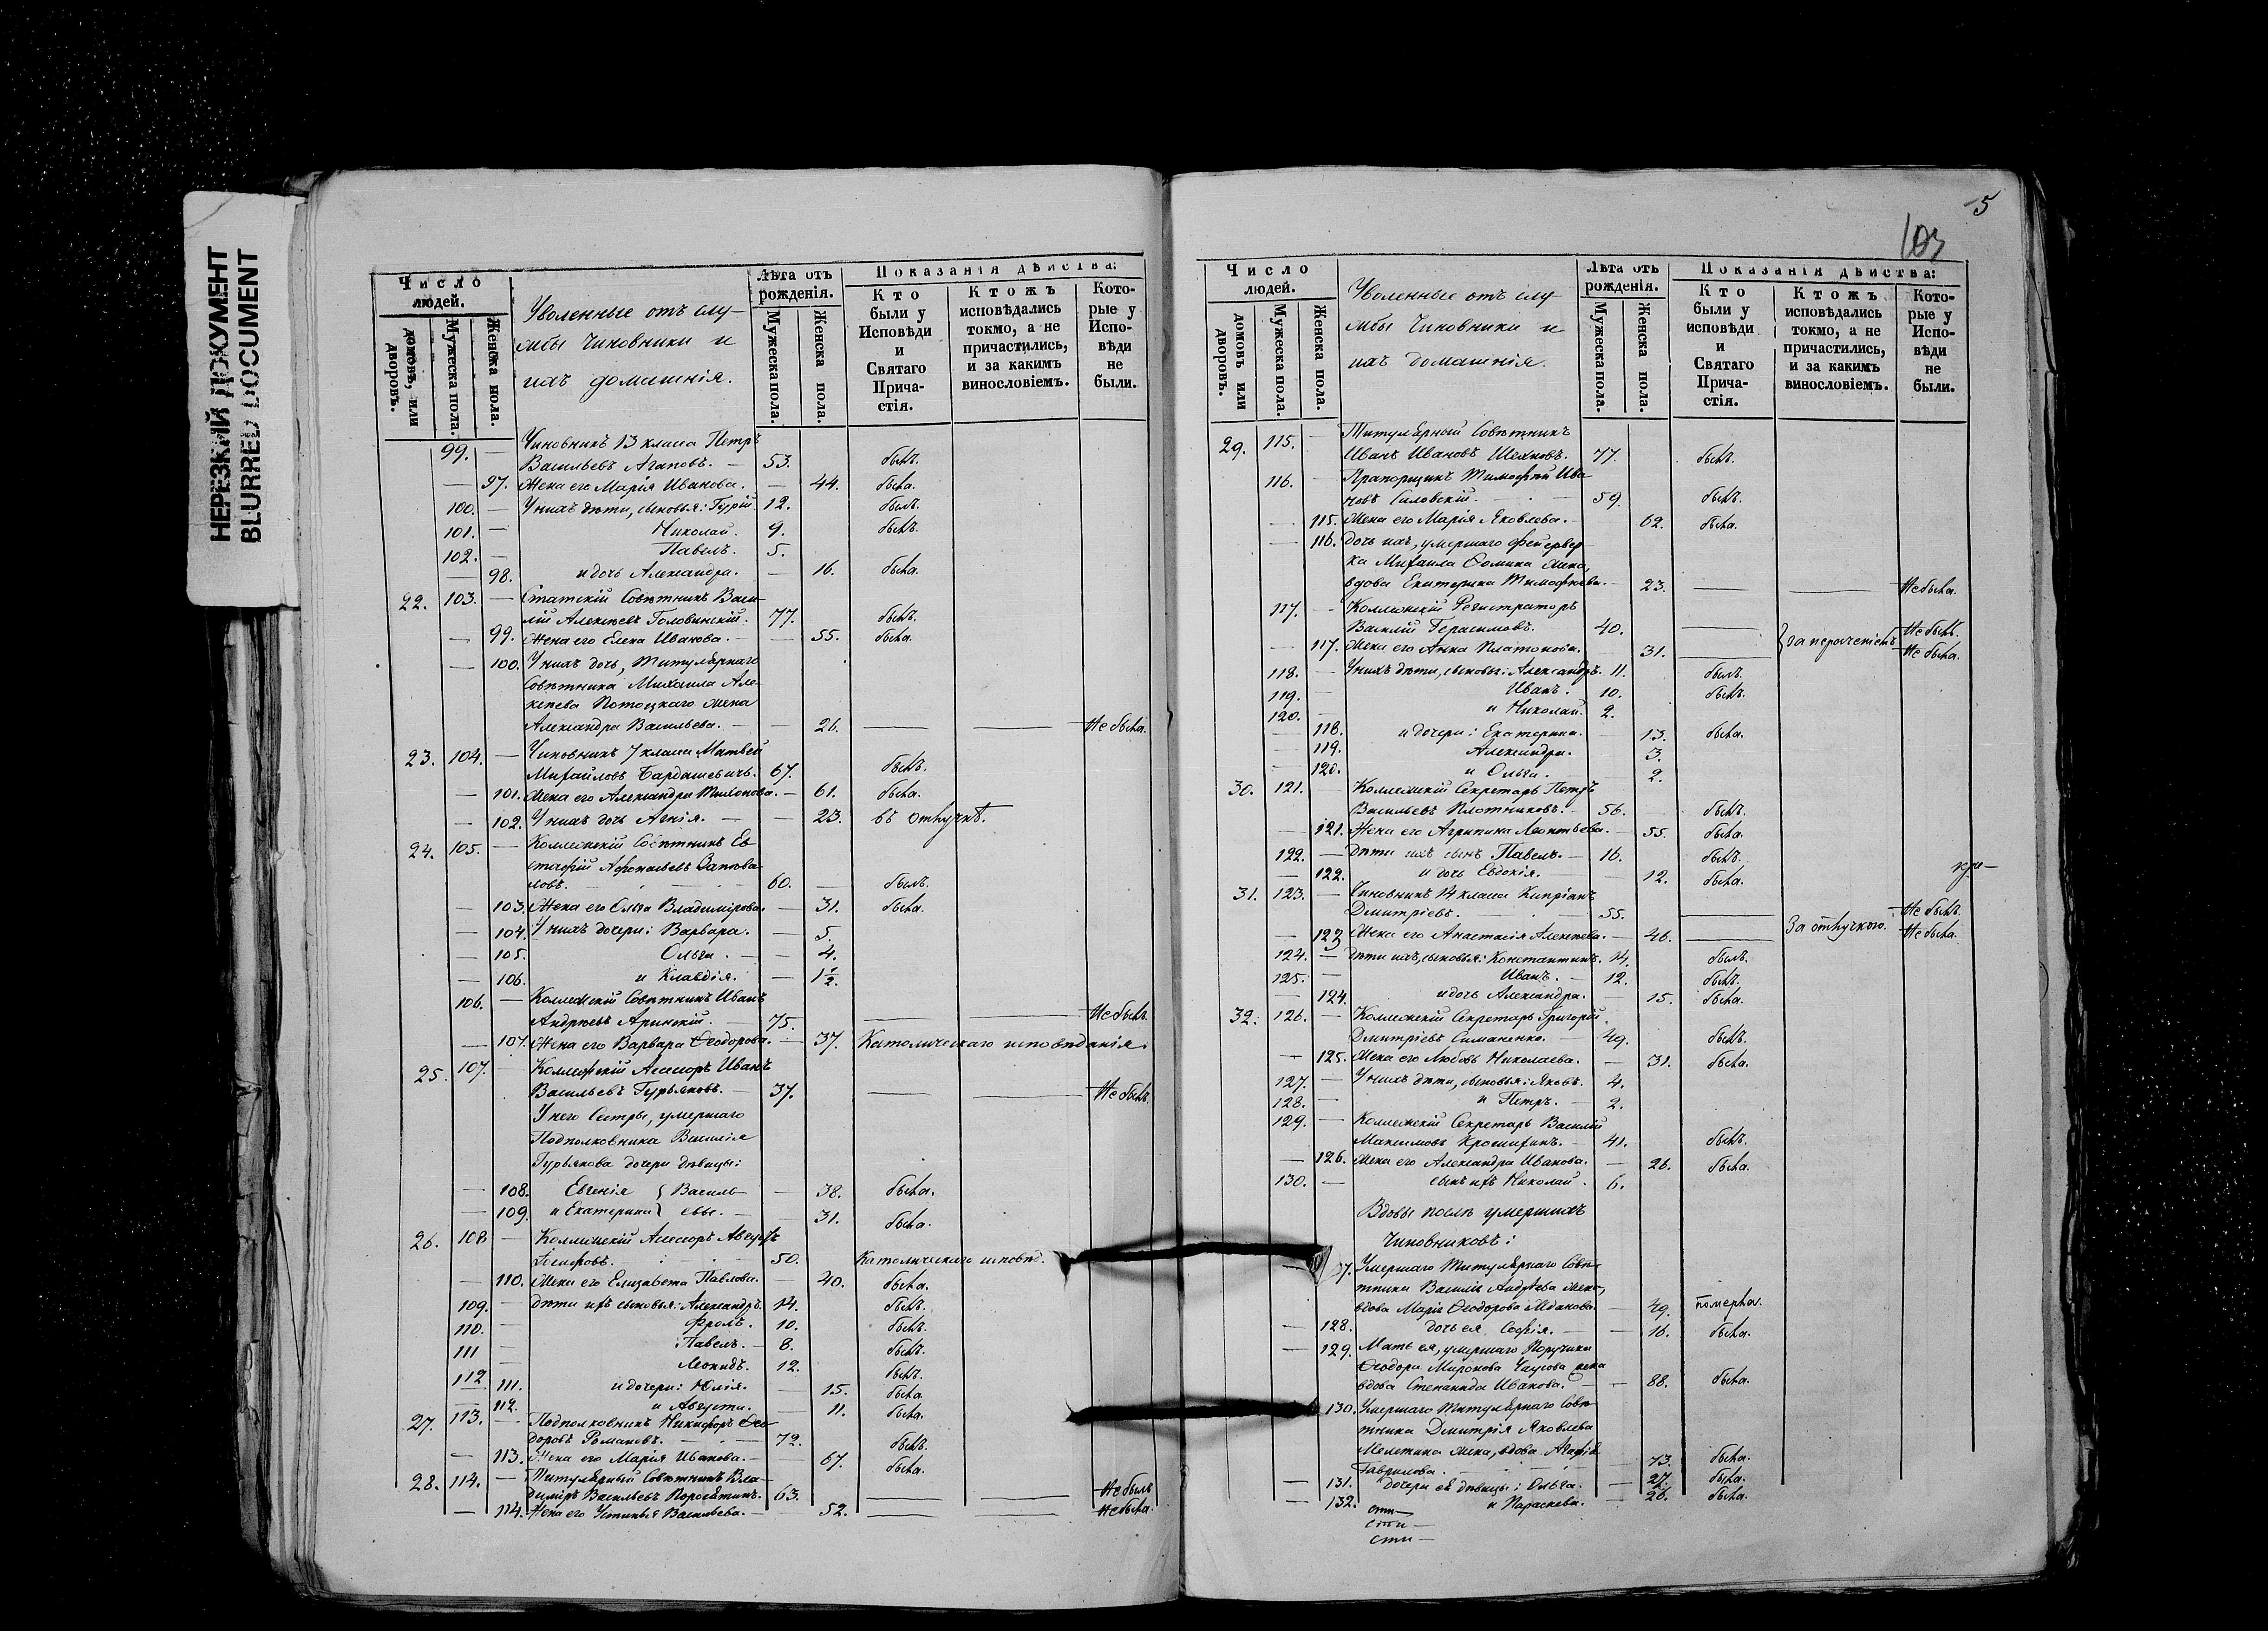 НЕРЕЗКИЙ ДОКУМЕНТ
BLURRED DOCUMENT
Число людей.
домовъ, или дворовъ.
Мужеска пола.
Женска пола.
Уволенные отъ слу-
жбы Чиновники и
ихъ домашнія.
Лѣта отъ рожденія.
Мужеска пола.
Женска пола.
Показанія дѣйства:
Кто были у Исповѣди и Святаго Причастія.
Ктожъ исповѣдались токмо, а не причастились, и за какимъ винословіемъ.
Которые у Исповѣди не были.
99. — Чиновникъ 13 класа Петръ
Васильевъ Агаповъ. — 53. былъ.
— 97. Жена его Марія Иванова. — 44. была.
100. — У нихъ дѣти, сыновья: Гурій 12. былъ.
101. — Николай. 9. былъ.
102. — Павелъ. 5.
— 98. и дочь Александра. — 16. была.
22. 103. — Статскій Совѣтникъ Васи-
лій Алексѣевъ Головинскій. 77. былъ.
— 99. Жена его Елена Иванова. — 55. была.
— 100. У нихъ дочь, Титулярнаго
Совѣтника Михаила Але-
ксѣева Потоцкаго жена
Александра Васильева. — 26. — — Не была.
23. 104. — Чиновникъ 7 класа Матвей
Михайловъ Бардашевичъ. 67. былъ.
— 101. Жена его Александра Тихонова. — 61. была.
— 102. У нихъ дочь Агнія. — 23. въ отлучкѣ.
24. 105. — Коллежскій Совѣтникъ Ев
стафій Афонасьевъ Запова
ловъ. — 60. — былъ.
— 103. Жена его Ольга Владимірова. — 31. была.
— 104. У нихъ дочери: Варвара. — 5.
— 105. Ольга. — 4.
— 106. и Клавдія. — 1½
106. — Коллежскій Совѣтникъ Иванъ
Андреевъ Аринскій. 75. — — Не былъ.
— 107. Жена его Варвара Ѳеодорова. — 37. Католическаго исповѣданія.
25. 107. — Коллежскій Асессоръ Иванъ
Васильевъ Гурьяковъ. — 37. — — Не былъ.
У него Сестры, умершаго
Подполковника Василія
Гурьякова дочери дѣвицы:
— 108. Евгенія } Василь — 38. была.
— 109. и Екатерина } евы. — 31. была.
26. 108 — Коллежскій Асессоръ Августъ
50. Католическаго исповѣд.
— 110. Жена его Елизавета Павлова. — 40. была.
109. — Дѣти ихъ сыновья: Александръ. 14. былъ.
110. — Фролъ. 10. былъ.
111 — Павелъ. — 8. былъ.
112 — Леонидъ. 12. былъ.
111. и дочери: Юлія. — 15. была.
— 112. и Августа. — 11. была.
27. 113. — Подполковникъ Никифоръ Ѳео
доровъ Романовъ. — 72. былъ.
— 113. Жена его Марія Иванова. — 67. была.
28. 114. — Титулярный Совѣтникъ Вла-
диміръ Васильевъ Поросятинъ. 63. — — Не былъ
— 114. Жена его Устинья Васильева. — 52. — — Не была.
5
103
Число людей.
домовъ или дворовъ.
Мужеска пола.
Женска пола.
Уволенные отъ слу-
жбы Чиновники и
ихъ домашнія.
Лѣта отъ рожденія.
Мужеска пола.
Женска пола.
Показанія дѣйства:
Кто были у исповѣди и Святаго Причастія.
Ктожъ исповѣдались токмо, а не причастились, и за какимъ винословіемъ.
Которые у Исповѣди не были.
29. 115. — Титулярный Совѣтникъ
Иванъ Ивановъ Шахновъ. 77. былъ.
116. — Прапорщикъ Тимофей Ива
новъ Саловскій. — 59. былъ.
— 115. Жена его Марія Яковлева. — 62. была.
— 116. Дочь ихъ, умершаго фейервер
ка Михаила Фомина жена,
вдова Екатерина Тимофеева. — 23. — — Не была.
117. — Коллежскій Регистраторъ
Василій Герасимовъ. 40. — } за нераченіемъ Не былъ.
— 117. Жена его Анна Платонова. — 31. — Не была.
118. — У нихъ дѣти, сыновья: Александръ. 11. былъ.
119. — Иванъ. 10. былъ.
120. — и Николай. 2.
— 118. и дочери: Екатерина. — 13. была.
— 119. Александра. 3.
— 120. и Ольга. 2.
30. 121. — Коллежскій Секретарь Петръ
Васильевъ Плотниковъ. — 56. былъ.
— 121. Жена его Агрипина Леонтьева. — 55. была.
122. — Дѣти ихъ сынъ Павелъ. — 16. былъ.
— 122. и дочь Евдокія. — 12. была.
31. 123. — Чиновникъ 14 класа Кипріанъ
Дмитріевъ. 55. — За отлучкою. Не былъ.
— 123 Жена его Анастасія Алексѣева. — 46. — Не была.
124. — Дѣти ихъ, сыновья: Константинъ. 14. былъ.
125. — Иванъ. — 12. былъ.
— 124. и дочь Александра. — 15. была.
32. 126. — Коллежскій Секретарь Григорій
Дмитріевъ Симаненко. — 49. былъ.
— 125. Жена его Любовь Николаева. — 31. была.
127. — У нихъ дѣти, сыновья: Яковъ. 4.
128. — и Петръ. — 2.
129. — Коллежскій Секретарь Василій
Максимовъ Крошихинъ. — 41. былъ.
— 126. Жена его Александра Иванова. — 26. была.
130. — сынъ ихъ Николай. 6.
Вдовы послѣ умершихъ
Чиновниковъ:
7. Умершаго Титулярнаго Совѣ-
тника Василія Андреева жена,
вдова Марія Ѳеодорова — 49. померла.
— 128. дочь ея Софія. — 16. была.
— 129. Мать ея, умершаго Поручика
Ѳеодора Миронова жена
вдова Степанида Иванова. — 88. была.
130. Умершаго Титулярнаго Совѣ
тника Дмитрія Яковлева
жена, вдова Агафія
Гаврилова. — 73. была.
— 131. Дочери ея дѣвицы: Ольга. — 27. была.
— 132. и Параскева. — 26. была.
сти —
сти —